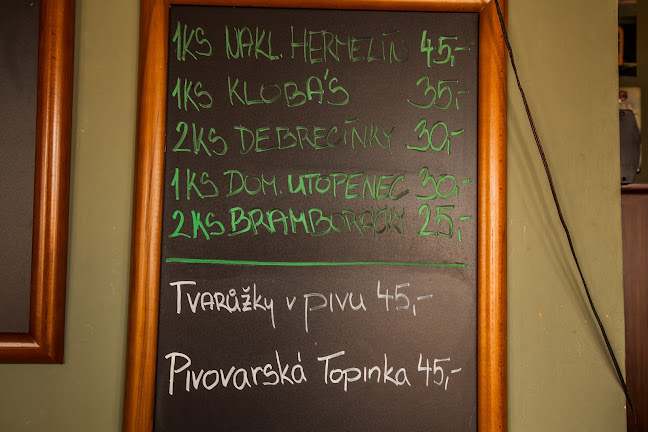 1KS NAKL. HERMELÍN 45,-
1KS KLOBÁS 35,-
2KS DEBRECÍNKY 30,-
1KS DOM. UTOPENEC 30,-
2KS BRAMBORÁČKY 25,-
TVARŮŽKY V PIVU 45,-
PIVOVARSKÁ TOPINKA 45,-